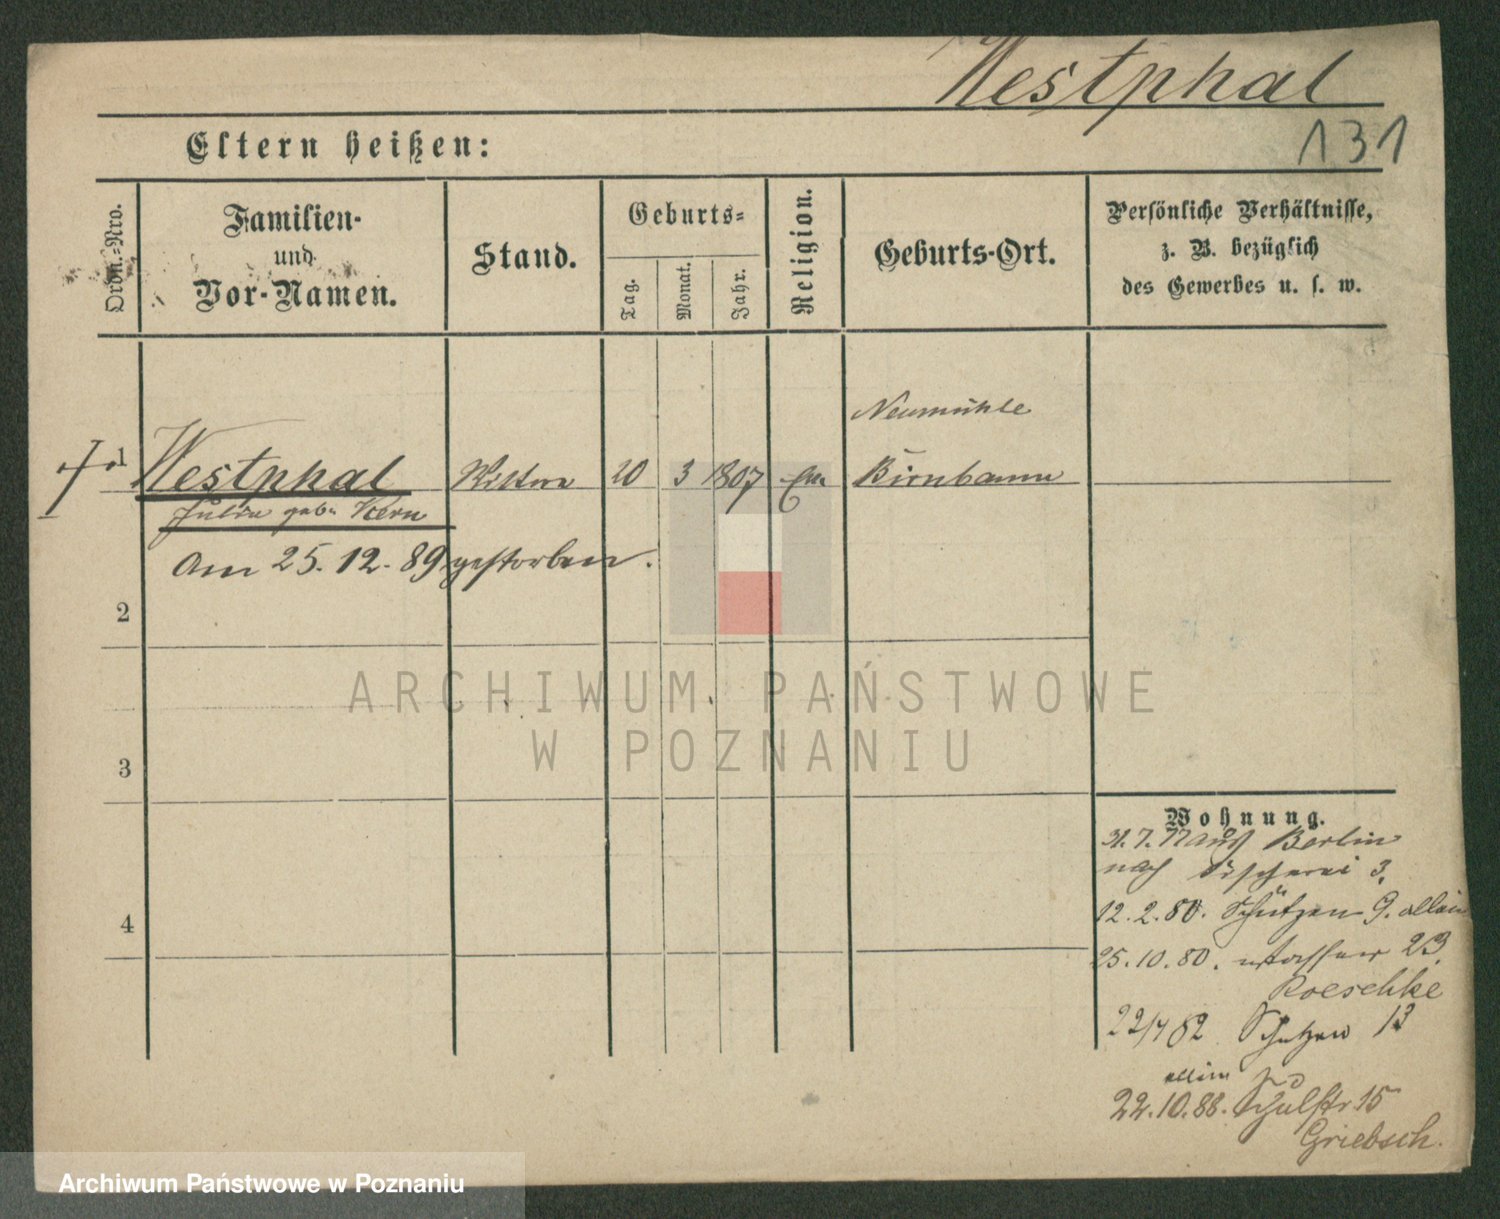 Westphal
131
Eltern heißen:
Ordn.-Nro.
Familien-
und
Vor-Namen.
Stand.
Geburts-
Tag.
Monat.
Jahr.
Religion.
Geburts-Ort.
Persönliche Verhältnisse,
z. B. bezüglich
des Gewerbes u. s. w.
Neumühle
1 Westphal Wittwe 20 3 1807 ev. Birnbaum
geb. Kern
Am 25. 12. 89 gestorben.
2
ARCHIWUM PAŃSTWOWE
W POZNANIU
3
Wohnung.
31. 7. 77 aus Berlin
nach Fischerei 3.
4
12. 2. 80. Schützen 9. allein
25. 10. 80. 23.
Roeschke
22/4 82 Schützen 13
allein
22. 10. 88. Schulstr 15
Griebsch.
Archiwum Państwowe w Poznaniu